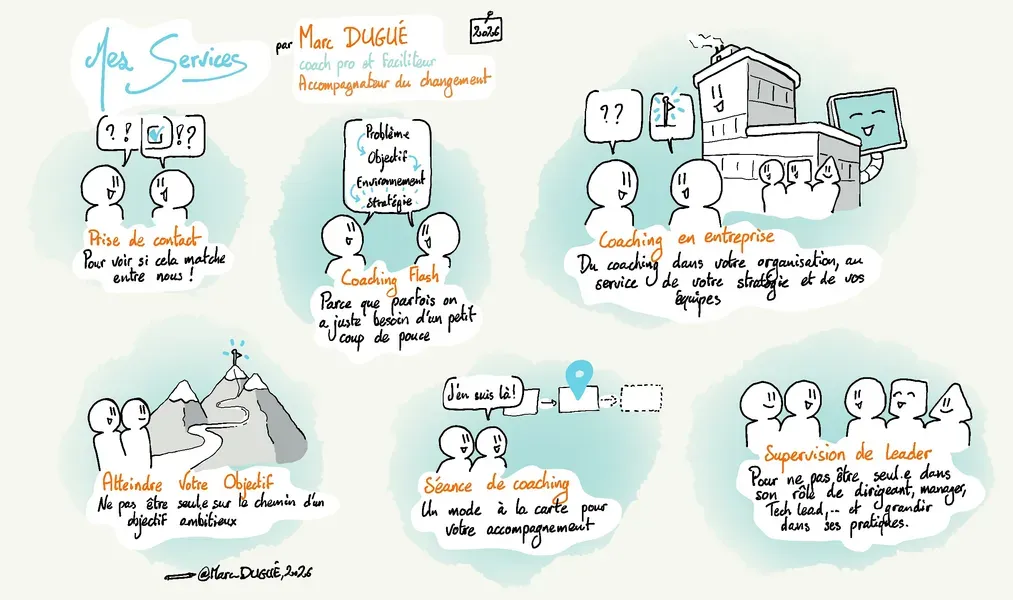 Mes Services
par Marc DUGUÉ
coach pro et Faciliteur
Accompagnateur du changement
2026
? !
!?
Prise de contact
Pour voir si cela matche
entre nous !
Problème
Objectif
Environnement
Stratégie
Coaching Flash
Parce que parfois on
a juste besoin d'un petit
coup de pouce
??
Coaching en entreprise
Du coaching dans votre organisation, au
service de votre stratégie et de vos
équipes
Atteindre Votre Objectif
Ne pas être seul.e sur le chemin d'un
objectif ambitieux
J'en suis là !
Séance de coaching
Un mode à la carte pour
votre accompagnement
Supervision de Leader
Pour ne pas être seul.e dans
son rôle de dirigeant, manager,
Tech Lead,... et grandir
dans ses pratiques.
@Marc DUGUÉ, 2026